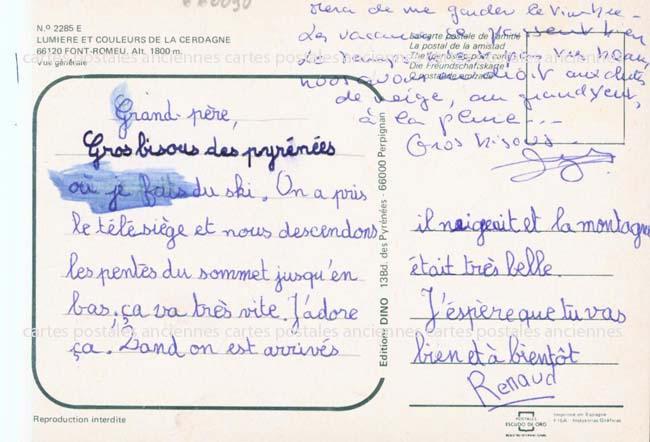 N.º 2285 E
LUMIERE ET COULEURS DE LA CERDAGNE
66120 FONT-ROMEU. Alt. 1800 m.
Vue générale
de me garder le timbre -
Les vacances se passent bien
La carte postale de l'amitié
La postal de la amistad
Die Freundschaftskarte
nous avons eu droit aux chutes
de neige, au grand vent,
à la pluie...
Gros bisous
Grand-père,
Gros bisous des pyrénées
où je fais du ski. On a pris
le télésiège et nous descendons
les pentes du sommet jusqu'en
bas, ça va très vite. J'adore
ça. Quand on est arrivés
Edition: DINO 13Bd. des Pyrénées - 66000 Perpignan
il neigeait et la montagne
était très belle.
J'espère que tu vas
bien et à bientôt
Renaud
cartes postales anciennes cartes postales anciennes cartes postales anciennes
cartes postales anciennes cartes postales anciennes cartes postales anciennes
Reproduction interdite
POSTALES
ESCUDO DE ORO
Imprimé en Espagne
FISA - Industrias Gráficas